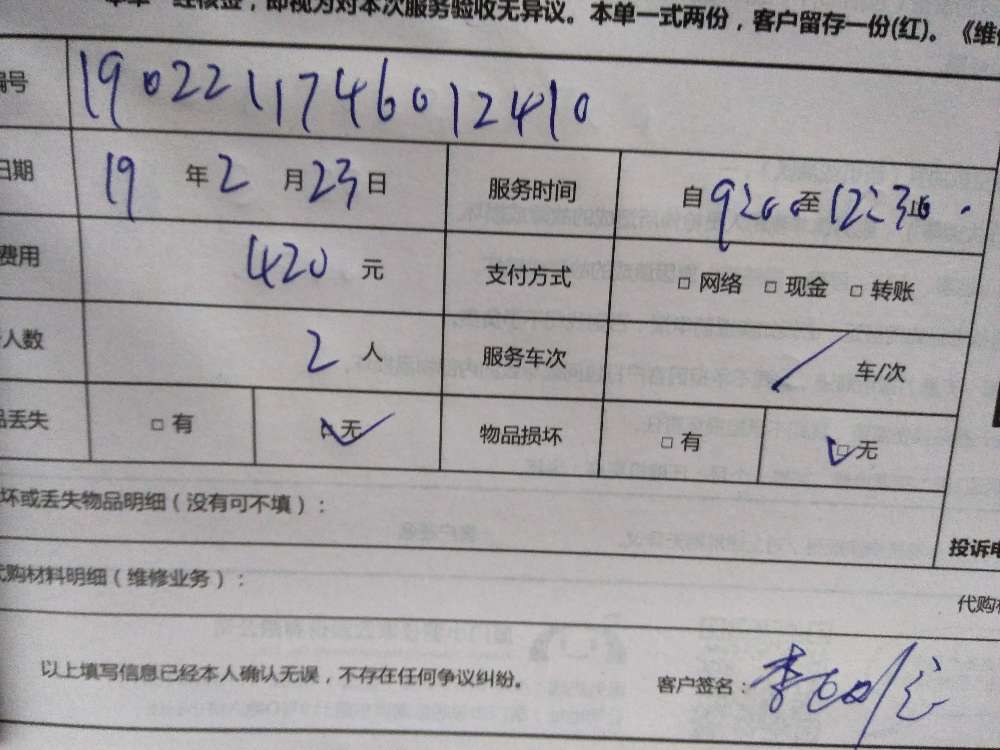 一经核签，即视为对本次服务验收无异议。本单一式两份，客户留存一份(红)。《维
编号 190221174601 2410
日期 19 年 2 月 23 日 服务时间 自 9:00 至 12:30 止
费用 420 元 支付方式 □ 网络 □ 现金 □ 转账
人数 2 人 服务车次 / 车/次
品丢失 □ 有 □ 无 物品损坏 □ 有 □ 无
坏或丢失物品明细（没有可不填）：
投诉电
代购材料明细（维修业务）：
代购
以上填写信息已经本人确认无误，不存在任何争议纠纷。 客户签名： 李